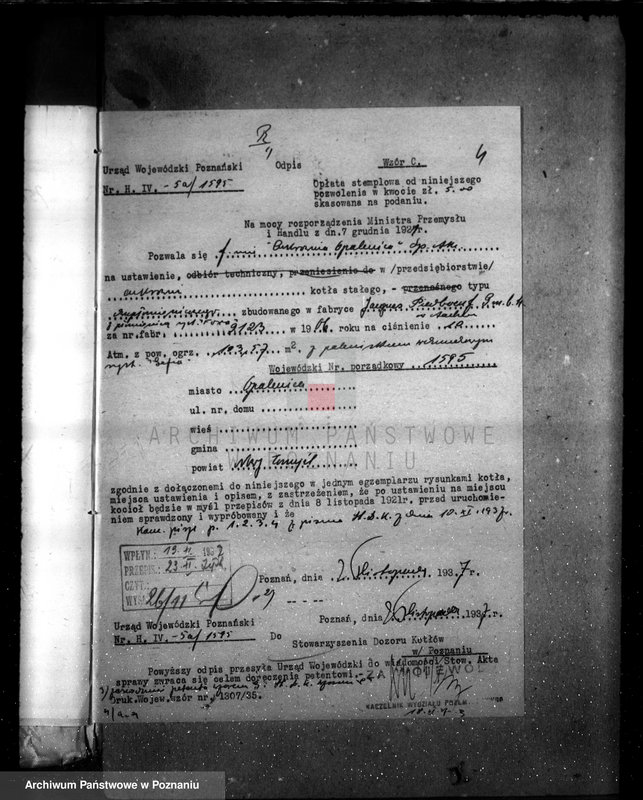 4
Urząd Wojewódzki Poznański Odpis Wzór C.
Nr. H. IV. -5a/1595
Opłata stemplowa od niniejszego
pozwolenia w kwocie zł. 5.00
skasowana na podaniu.
Na mocy rozporządzenia Ministra Przemysłu
i handlu z dn.7 grudnia 1921r.
Pozwala się firmie "Cukrownia Opalenica" Sp. Akc.
na ustawienie, odbiór techniczny, przeniesienie do w /przedsiębiorstwie/
cukrowni kotła stałego, - przenośnego typu
zbudowanego w fabryce Jacques Piedboeuf G.m.b.H.
za nr.fabr. 9123 w 1916 roku na ciśnienie 12
Atm. z pow. ogrz. 103,57 m² z paleniskiem
Wojewódzki Nr. porządkowy 1595
miasto Opalenica
ul. nr. domu
wieś
ARCHIWUM PAŃSTWOWE
gmina
W POZNANIU
powiat Nowy Tomyśl
zgodnie z dołączonemi do niniejszego w jednym egzemplarzu rysunkami kotła,
miejsca ustawienia i opisem, z zastrzeżeniem, że po ustawieniu na miejscu
kocioł będzie w myśl przepisów z dnia 8 listopada 1921r. przed uruchomie-
niem sprawdzony i wypróbowany i że
p. 1.2.3.4 z pisma H.D.K. z dnia 10.XI.1937r.
WPŁYN.: 19.11 1937
PRZEPIS.: 23.11
CZYT.:
WYS. 26/11
Poznań, dnia 2 listopada 1937r.
Poznań, dnia listopada 1937r.
Urząd Wojewódzki Poznański
Nr. H. IV. -5a/1595 Do
Stowarzyszenia Dozoru Kotłów
w/ Poznaniu
Powyższy odpis przesyła Urząd Wojewódzki do wiadomości/Stow. Akta
sprawy zwraca się celem doręczenia petentowi.-
ZA WOJEWODĘ
Druk.Wojew.wzór nr. 1307/35.
KACZELNIK WYDZIAŁU PRZEM.
Archiwum Państwowe w Poznaniu